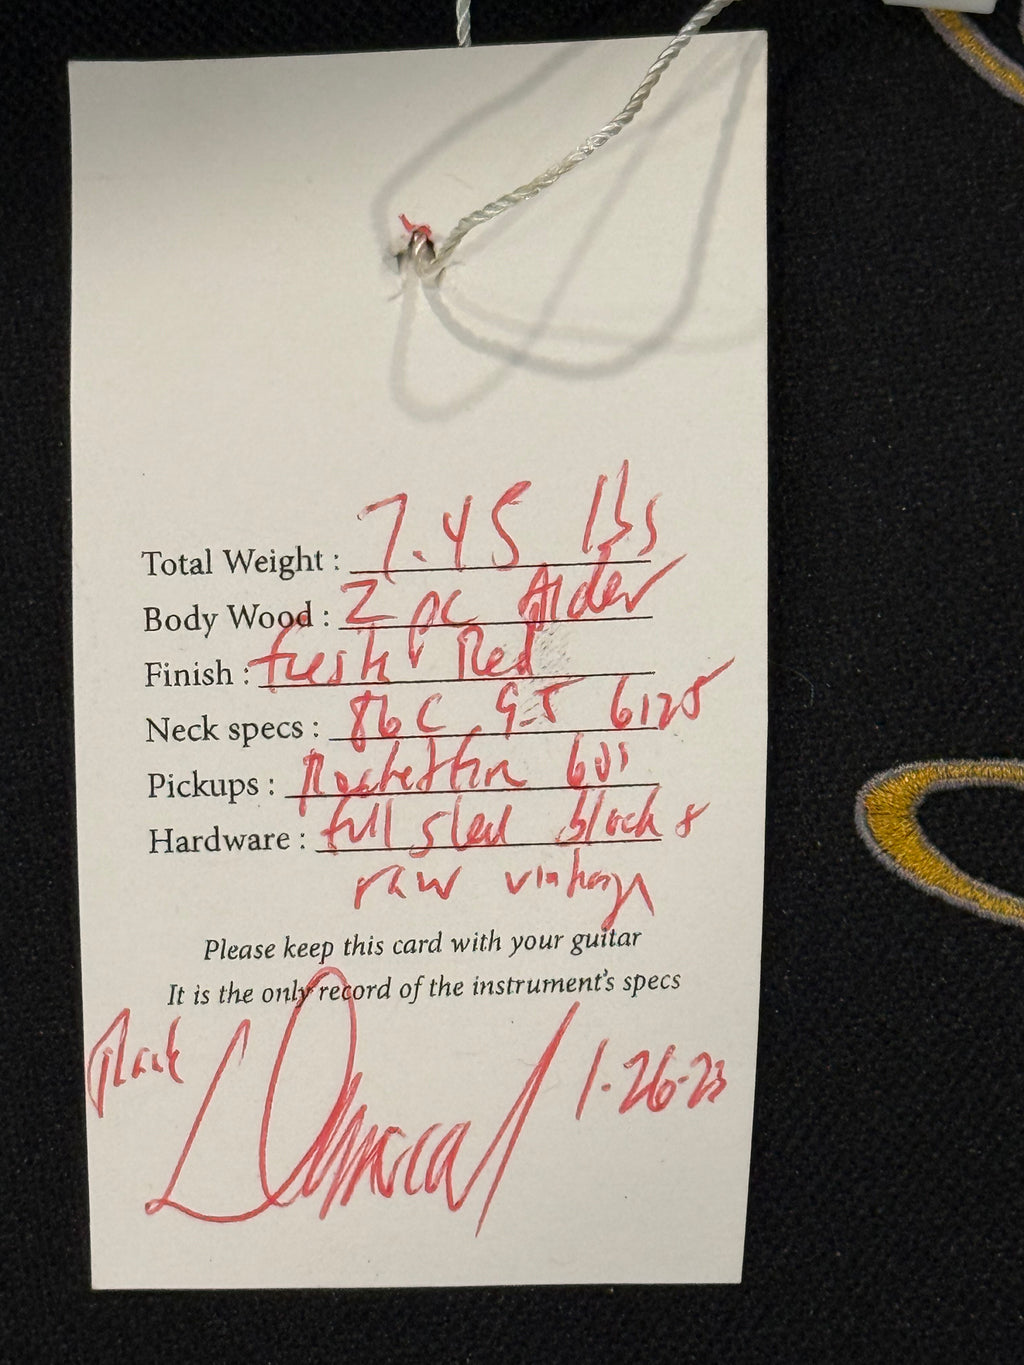 Total Weight : 7.45 lbs
Body Wood : 2 pc Alder
Finish : Red
Neck specs : 86 C 9.5 6125
Pickups : 60s
Hardware : full steel block &
raw vintage
Please keep this card with your guitar
It is the only record of the instrument's specs
1-26-23